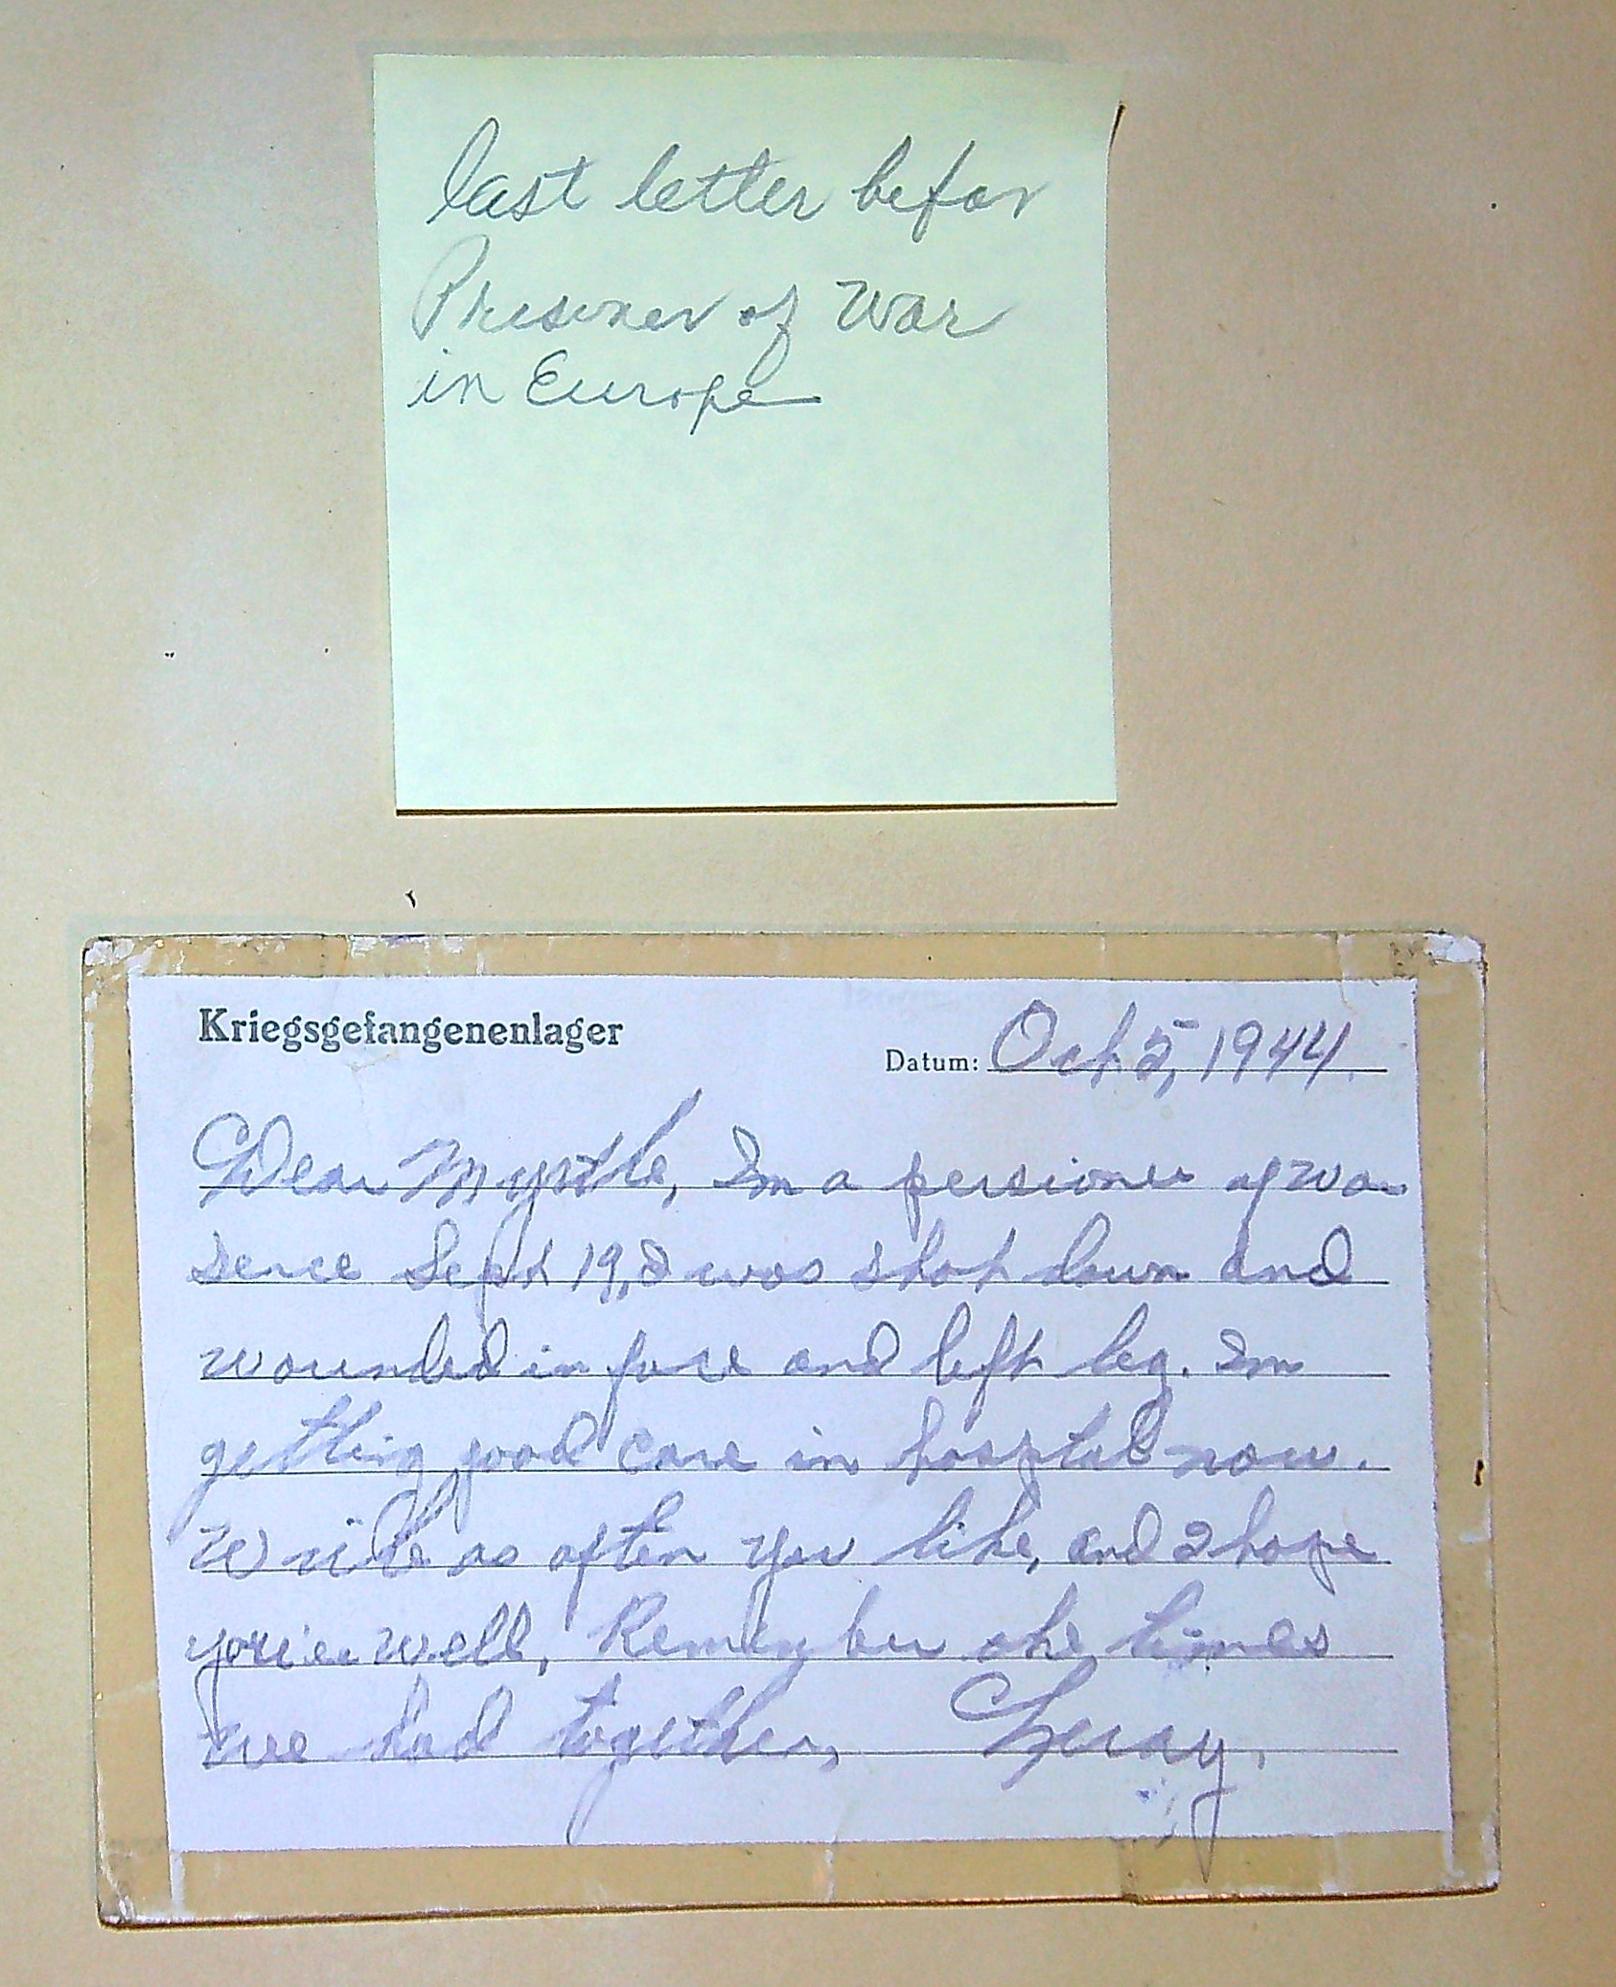 last letter befor
Prisoner of War
in Europe
Kriegsgefangenenlager
Datum: Oct 5, 1944.
Dear Myrtle, Im a persioner of war
sence Sept 19, I was shot down and
wounded in face and left leg. Im
getting good care in hospital now.
Write as often you like, and I hope
you'er well, Remember the times
we had together, Leray.